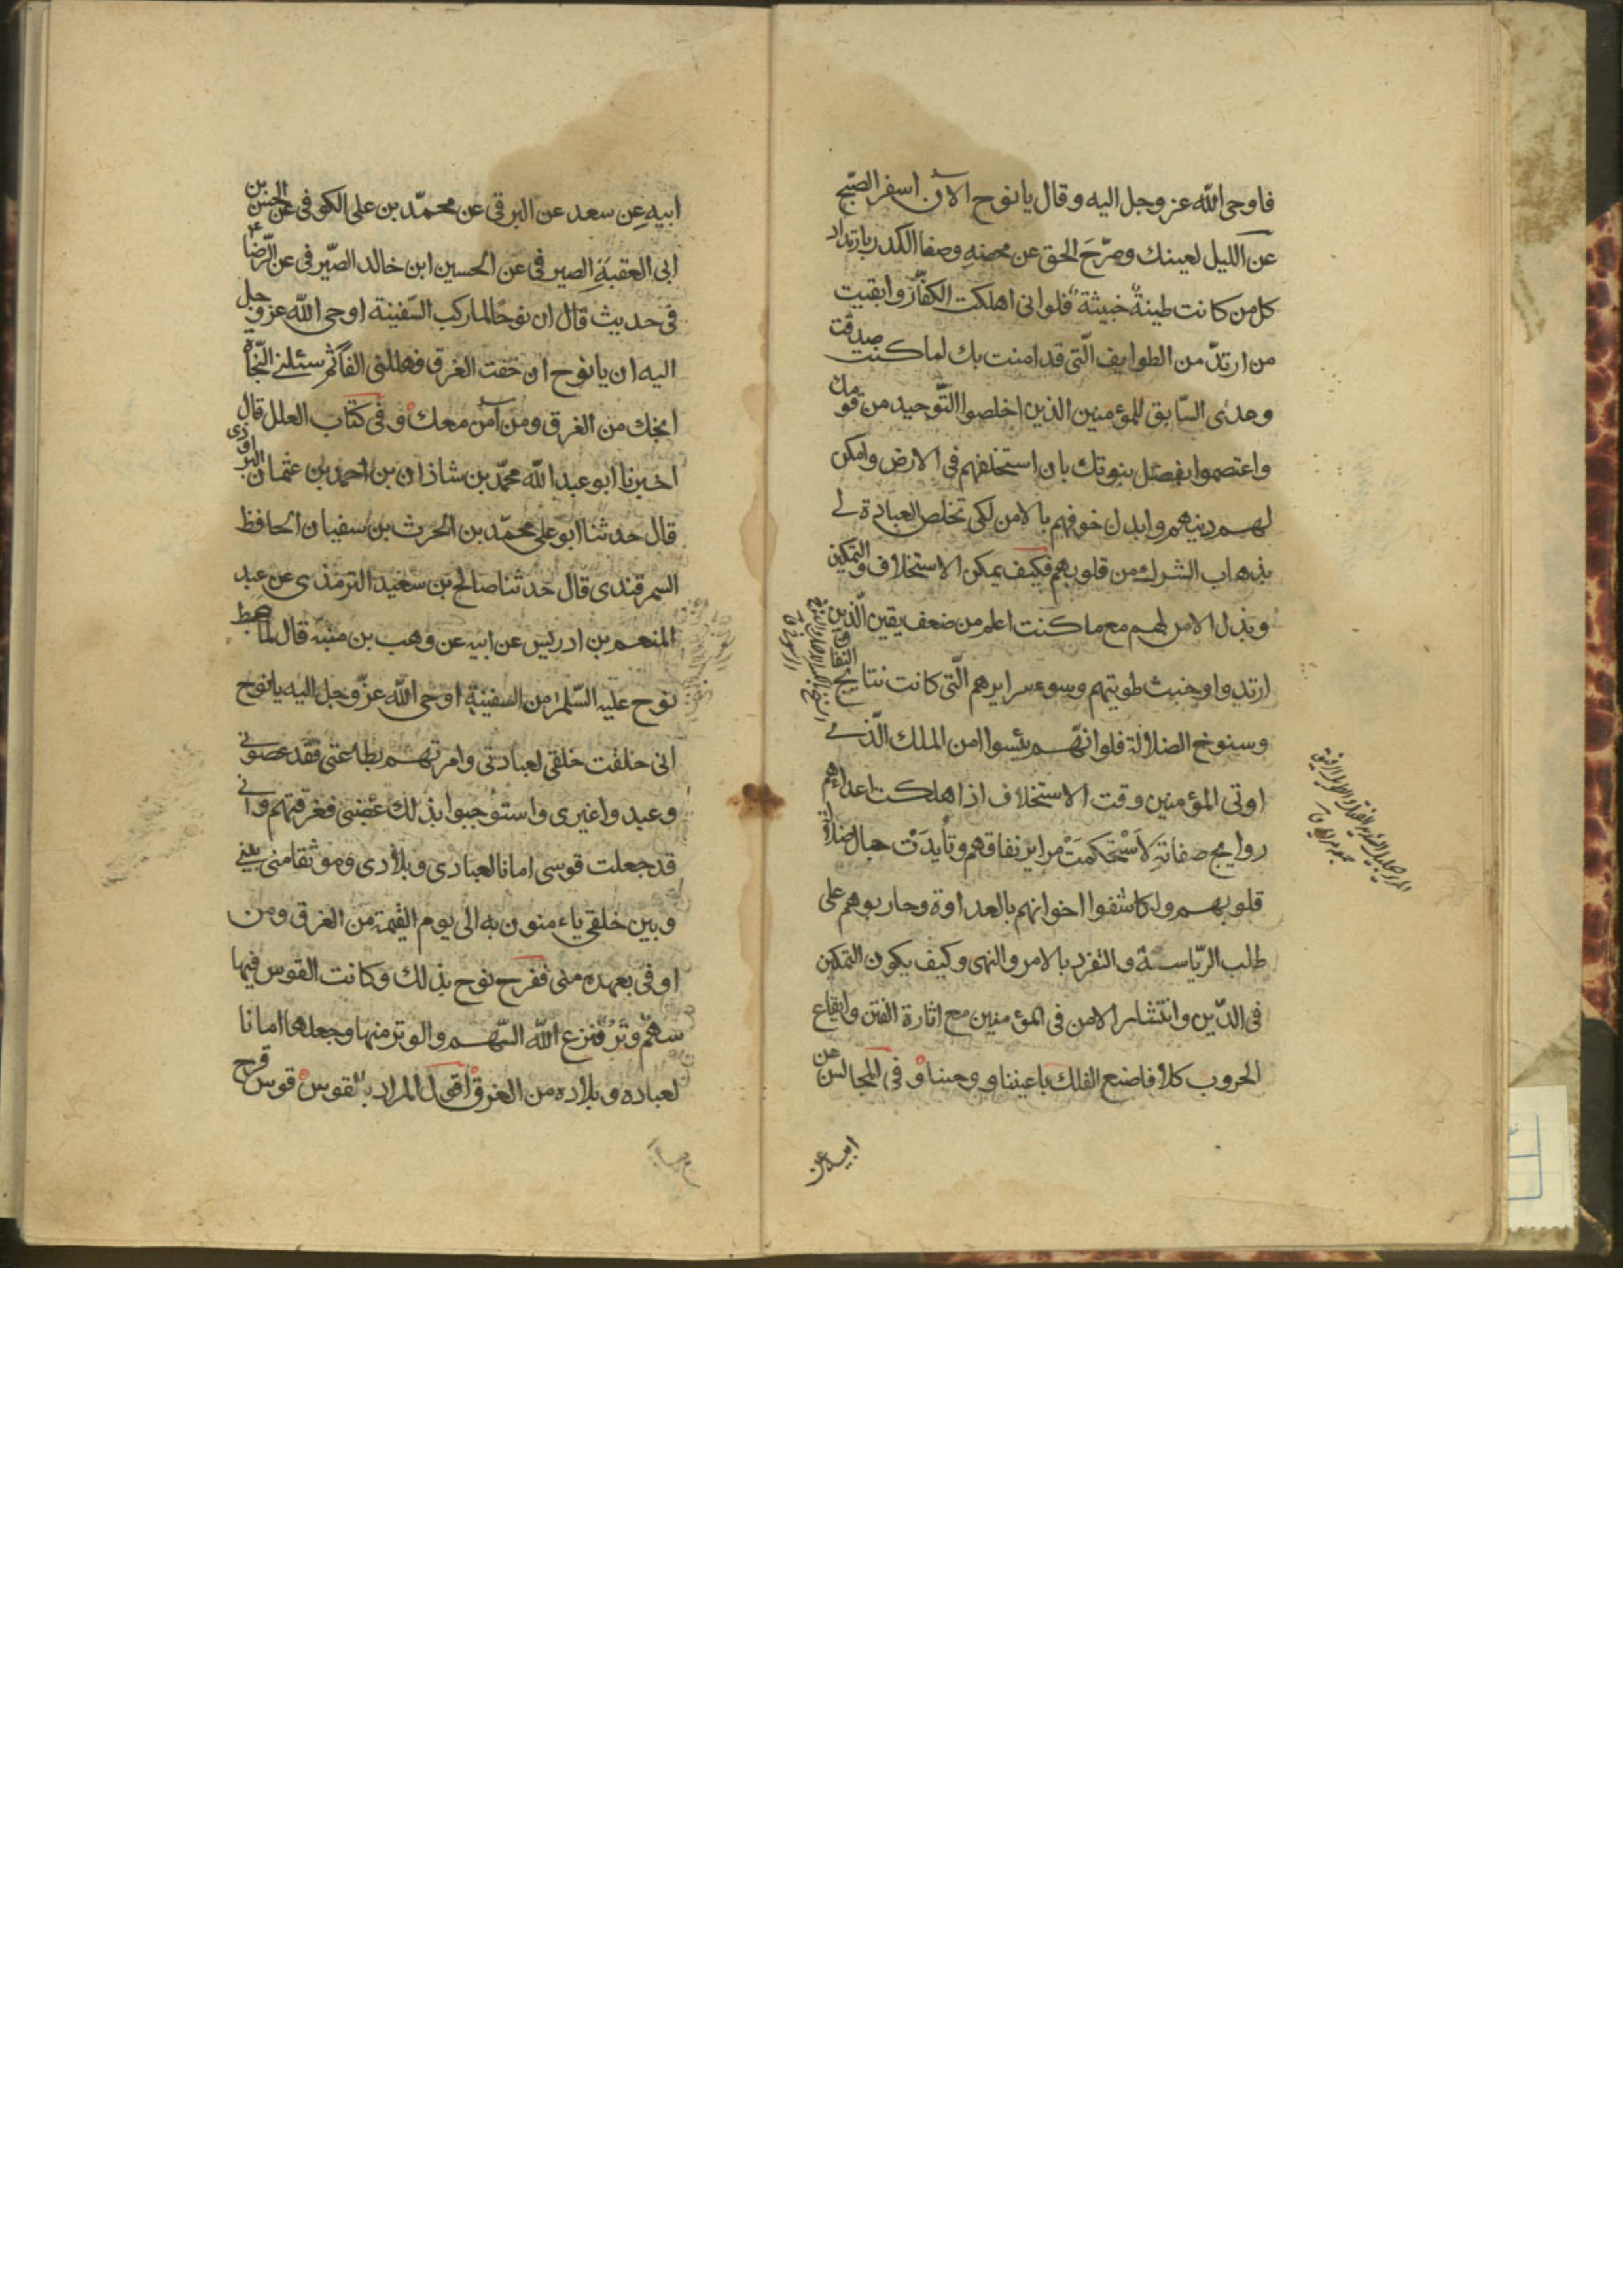 فاوحى الله عز وجل اليه وقال يا نوح الآن اسفر الصّبح
عن الليل لعينك وصرّح الحق عن محضه وصفا الكدر بارتداد
كل من كانت طينته خبيثة فلو انى اهلكت الكفّار وابقيت
من ارتدّ من الطوايف الّتى قد امنت بك لما كنت صدقت
وعدى السّابق للمؤمنين الذين اخلصوا التّوحيد من قومك
واعتصموا بفضل بنوتك بان استخلفهم فى الارض وامكن
لهم دينهم وابدل خوفهم بالامن لكى تخلص العبادة لى
بذهاب الشرك من قلوبهم فكيف يمكن الاستخلاف والتمكين
وبذل الامن لهم مع ما كنت اعلم من ضعف يقين الّذين
ارتدوا وخبث طويتهم وسوء سرايرهم الّتى كانت نتايج النفاق
وسنوخ الضلالة فلو انّهم يئسوا من الملك الّذى
اوتى المؤمنين وقت الاستخلاف اذا اهلكت اعداءهم
روايح صفاته لاستحكمت مراير نفاقهم وتأيدت حبال ضلالة
قلوبهم ولكاشفوا اخوانهم بالعداوة وحاربوهم على
طلب الرّياسة والتفرد بالامر والنهى وكيف يكون التمكين
فى الدّين وانتشار الامن فى المؤمنين مع اثارة الفتن وايقاع
الحروب كلا فاصنع الفلك باعيننا ووحينا وفى المجالس عن
ابيه عن
ابيه عن سعد عن البرقى عن محمّد بن على الكوفى عن الحسن بن
ابى العقبة الصيرفى عن الحسين ابن خالد الصّيرفى عن الرّضا ع
فى حديث قال ان نوحا لما ركب السّفينة اوحى الله عز وجل
اليه ان يا نوح ان خفت الغرق فهللنى الفا ثم سئلنى النّجاة
انجك من الغرق ومن آمن معك وفى كتاب العلل قال
اخبرنا ابو عبد الله محمّد بن شاذان بن احمد بن عثمان البرواذى
قال حدثنا ابو على محمّد بن الحرث بن سفيان الحافظ
السمرقندى قال حدثنا صالح بن سعيد الترمذى عن عبد
المنعم بن ادريس عن ابيه عن وهب بن منبه قال لما هبط
نوح عليه السّلم من السفينة اوحى الله عزّ وجل اليه يا نوح
انى خلقت خلقى لعبادتى وامرتهم بطاعتى فقد عصونى
وعبدوا غيرى واستوجبوا بذلك غضبى فغرقتهم وانى
قد جعلت قوسى امانا لعبادى وبلادى وموثقا منى بينى
وبين خلقى ياءمنون به الى يوم القيمة من الغرق ومن
اوفى بعهده منى ففرح نوح بذلك وكانت القوس فيها
سهم ووتر فنزع الله السّهم والوتر منها وجعلها امانا
لعباده وبلاده من الغرق اقول المراد بالقوس قوس قزح